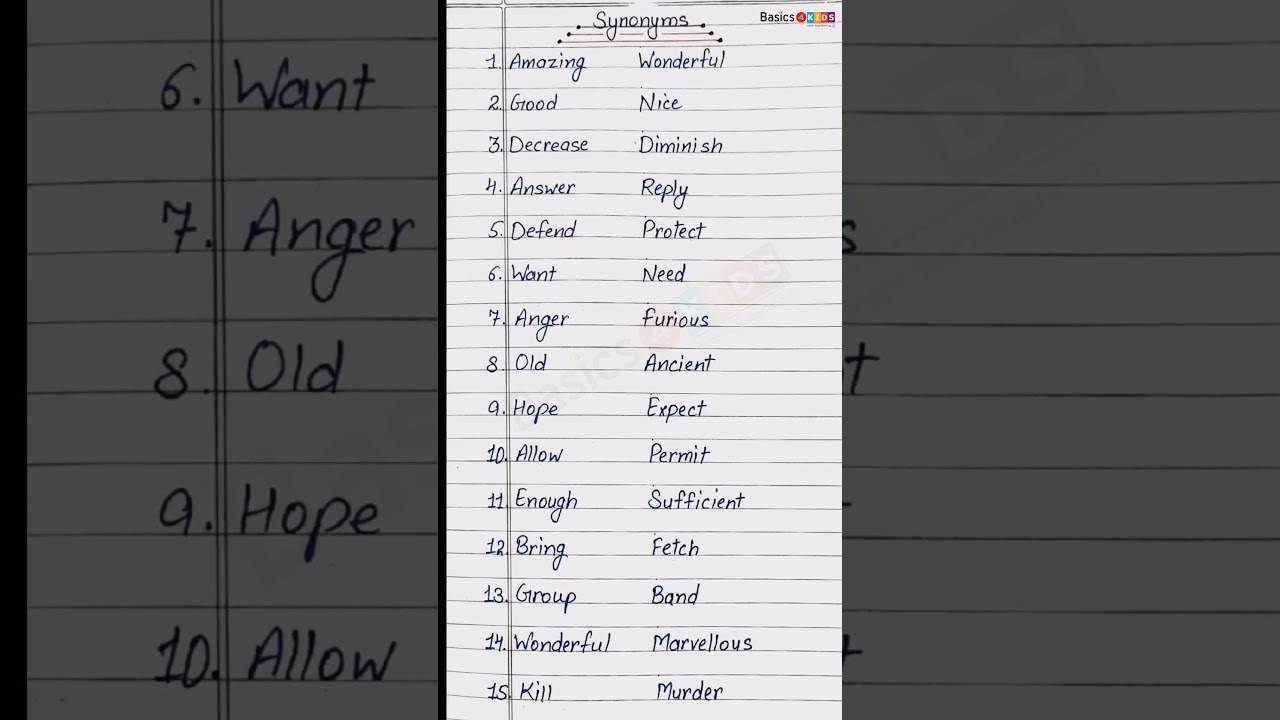 Synonyms
Basics4KIDS
1. Amazing Wonderful
2. Good Nice
3. Decrease Diminish
4. Answer Reply
5. Defend Protect
6. Want Need
7. Anger Furious
8. Old Ancient
9. Hope Expect
10. Allow Permit
11. Enough Sufficient
12. Bring Fetch
13. Group Band
14. Wonderful Marvellous
15. Kill Murder
6. Want
7. Anger
8. Old
9. Hope
10. Allow
s
t
Basics4KIDS